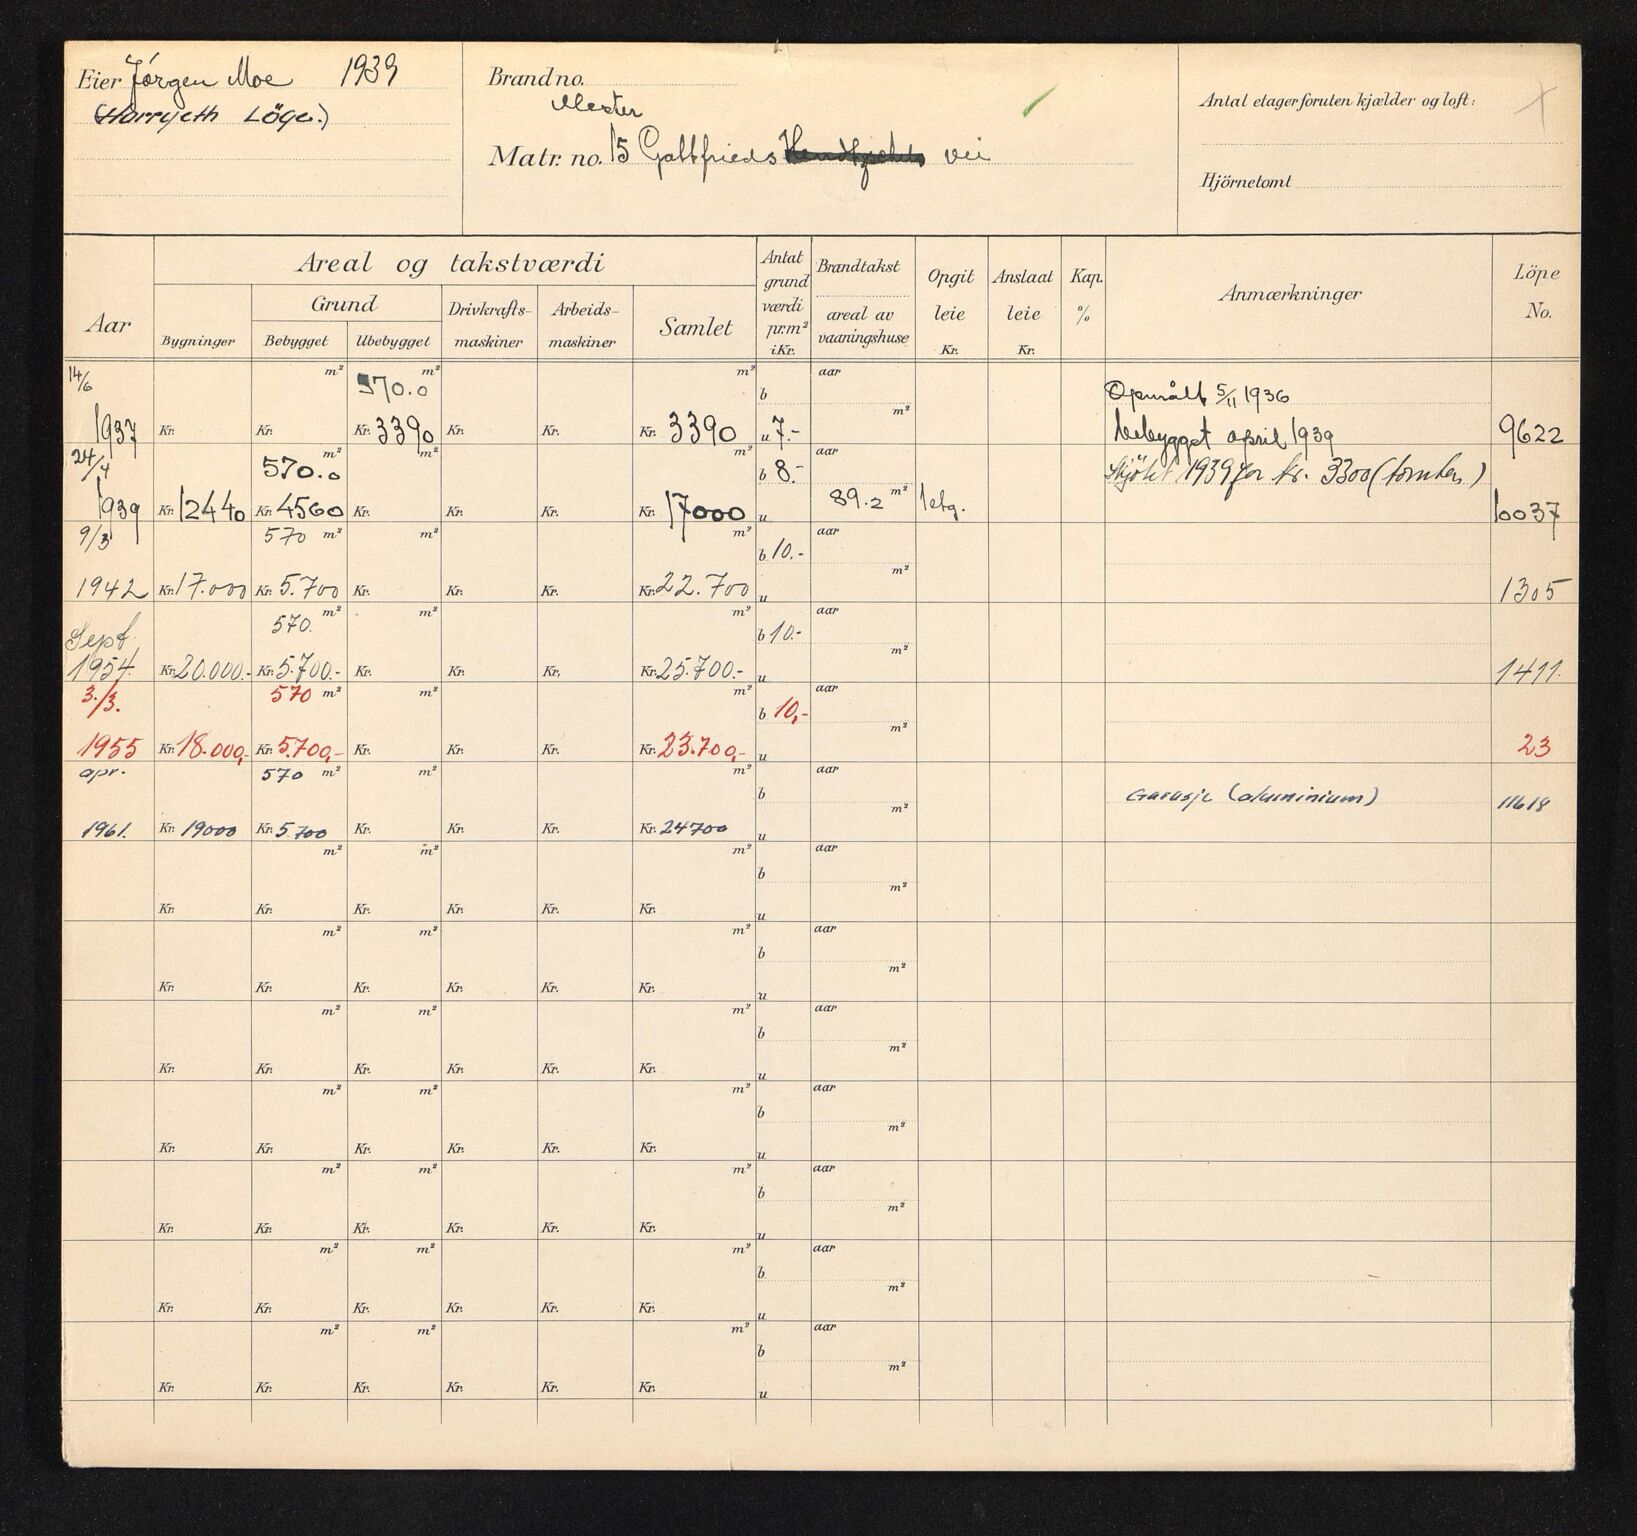 Eier Jörgen Moe 1939
Brand no.
Antal etager foruten kjælder og loft:
Mester
Matr. no. 15 Gottfrieds vei
Hjörnetomt
Aar
Areal og takstværdi
Bygninger
Grund
Bebygget
Ubebygget
Drivkrafts-
maskiner
Arbeids-
maskiner
Samlet
Antat
grund
værdi
pr.m²
i Kr.
Brandtakst
areal av
vaaningshuse
Opgit
leie
Kr.
Anslaat
leie
Kr.
Kap.
%
Anmærkninger
Löpe
No.
14/6 m² 570.0 m² m² b aar Opmålt 5/11 1936
m² bebygget april 1939
1937 Kr. Kr. Kr. 3390 Kr. Kr. Kr. 3390 u 7.- 9622
24/4 570.0 m² m² m² b 8.- aar Skjöte 1939 for kr. 3300 (tomten)
1939 Kr. 12440 Kr. 4560 Kr. Kr. Kr. Kr. 17000 u 89.2 m² 1 etg. 10037
9/3 570 m² m² m² b 10.- aar
m²
1942 Kr. 17.000 Kr. 5.700 Kr. Kr. Kr. Kr. 22.700 u 1305
Sept. 570. m² m² m² b 10.- aar
m²
1954. Kr. 20.000.- Kr. 5.700.- Kr. Kr. Kr. Kr. 25.700.- u 1411.
3./3. 570 m² m² m² b 10,- aar
m²
1955 Kr. 18.000,- Kr. 5.700,- Kr. Kr. Kr. Kr. 23.700,- u 23
apr. 570 m² m² m² b aar
Garasje (aluminium) 11618
m²
1961. Kr. 19000 Kr. 5.700 Kr. Kr. Kr. Kr. 24700 u
m² m² m² b aar
m²
Kr. Kr. Kr. Kr. Kr. Kr. u
m² m² m² b aar
m²
Kr. Kr. Kr. Kr. Kr. Kr. u
m² m² m² b aar
m²
Kr. Kr. Kr. Kr. Kr. Kr. u
m² m² m² b aar
m²
Kr. Kr. Kr. Kr. Kr. Kr. u
m² m² m² b aar
m²
Kr. Kr. Kr. Kr. Kr. Kr. u
m² m² m² b aar
m²
Kr. Kr. Kr. Kr. Kr. Kr. u
m² m² m² b aar
m²
Kr. Kr. Kr. Kr. Kr. Kr. u